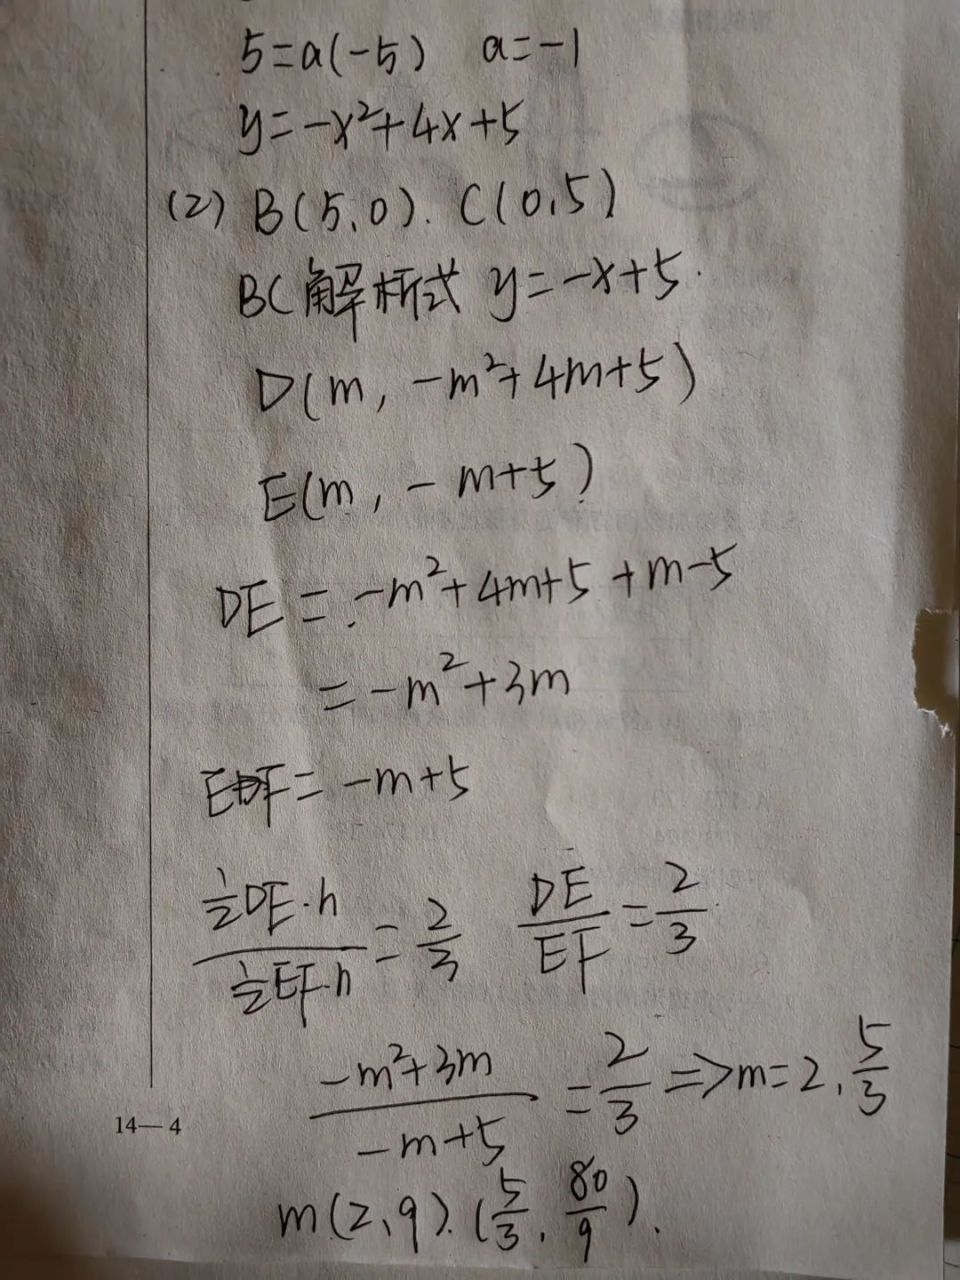 5=a(-5) a=-1
y=-x²+4x+5
(2) B(5,0). C(0,5)
BC解析式 y=-x+5.
D(m, -m²+4m+5)
E(m, -m+5)
DE = -m²+4m+5+m-5
= -m²+3m
EF= -m+5
½DE·h / ½EF·h = 2/3 DE/EF = 2/3
-m²+3m / -m+5 = 2/3 => m=2, 5/3
14—4
m(2,9). (5/3, 80/9).